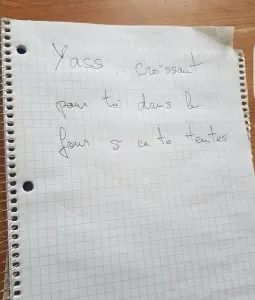 Yass croissant
pour toi dans le
four si ca te tentes